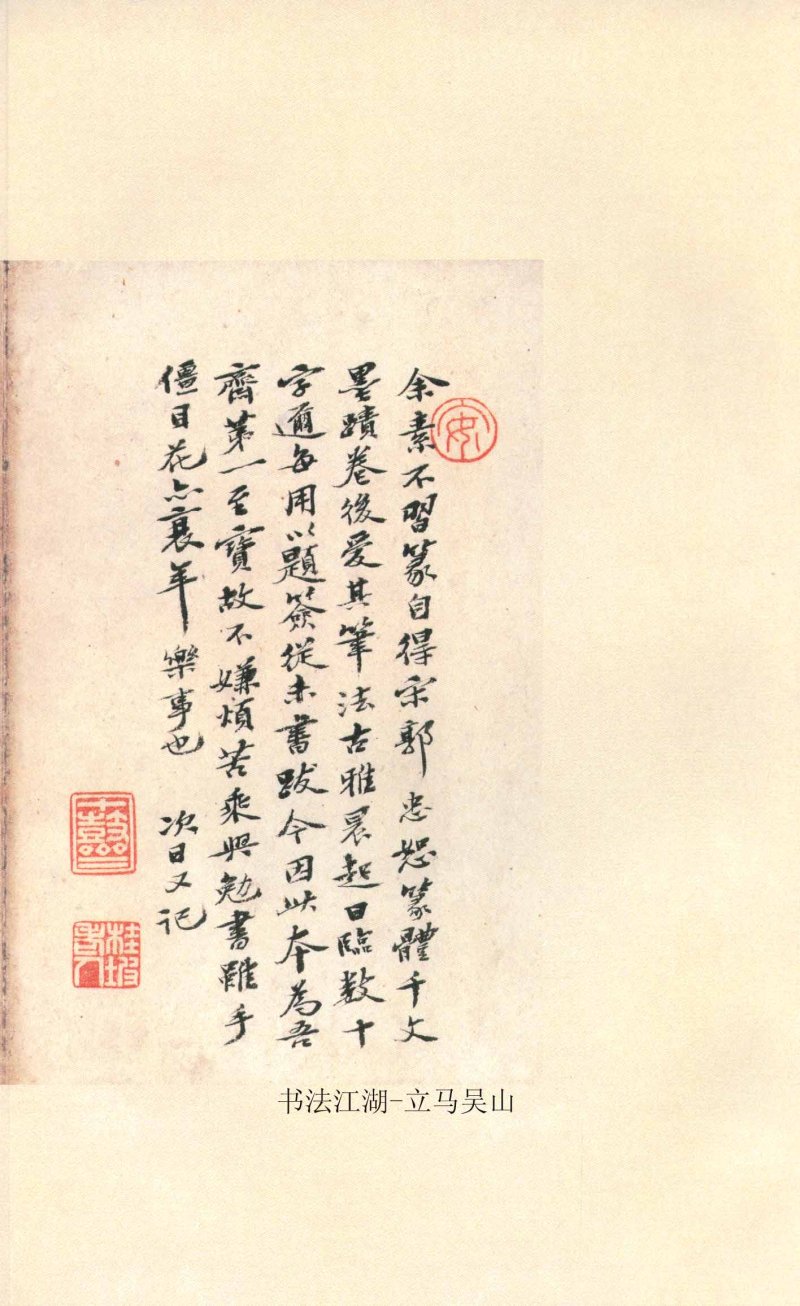 余素不習篆自得宋郭忠恕篆體千文
墨蹟卷後愛其筆法古雅晨起日臨數十
字邇每用以題簽從未書跋今因此本為吾
齋第一至寶故不嫌煩苦乘興勉書雖手
僵目花亦衰年樂事也 次日又記
安
桂坡
书法江湖-立马吴山